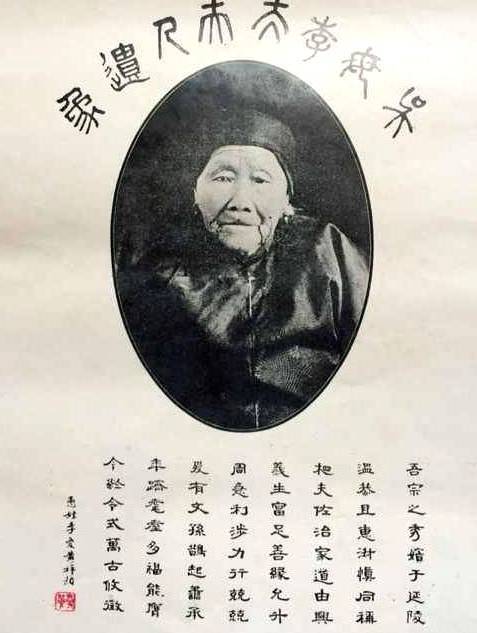 吳母李太夫人遺象
吾宗之秀嬪于延陵
溫恭且惠淑慎同稱
相夫佐治家道由興
義生富足善緣允升
周急利涉力行兢兢
爰有文孫鵲起肅承
年躋耄耋多福能膺
令終令式萬古攸徵
愚姪李